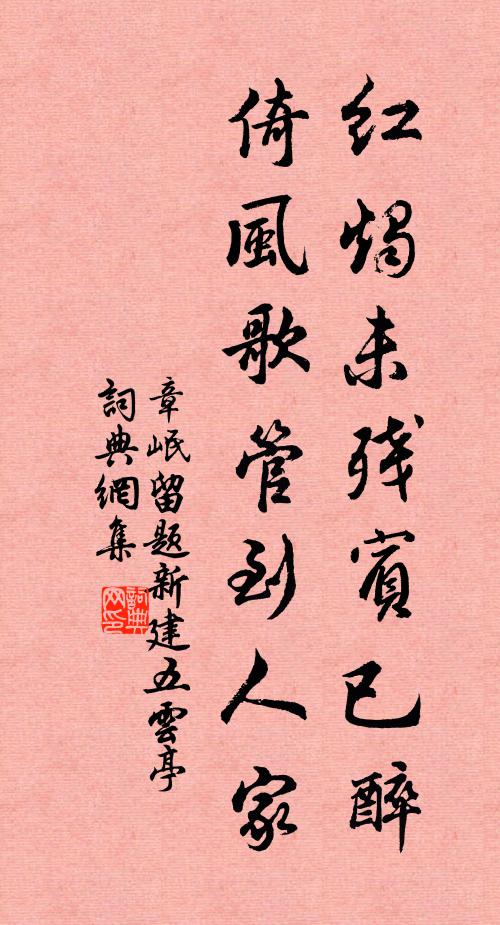 紅燭未殘賓已醉
倚風歌管到人家
章岷留題新建五雲亭
詞典網集
詞典網印